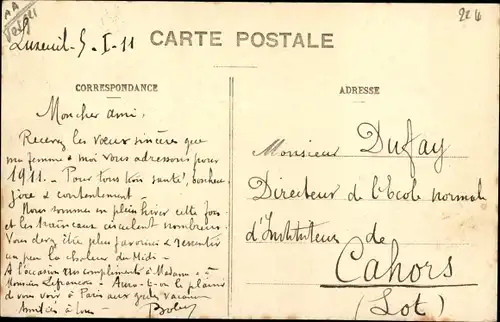 Luxeuil - 5 - I - 11
CARTE POSTALE
CORRESPONDANCE
ADRESSE
Mon cher ami,
Recevez les vœux sincères que
ma femme & moi vous adressons pour
1911. - Pour tous bon santé, bonheur
joie & contentement -
Nous sommes en plein hiver cette fois
et les traineaux circulent nombreux.
Vous devez être plus favorisés & ressentir
un peu la chaleur du Midi -
A l'occasion nos compliments à Madame - à
Monsieur - Aura-t-on le plaisir
de vous voir à Paris aux vacances
Amitiés à tous -
Monsieur Dufay
Directeur de l'Ecole normale
d'Instituteurs de
Cahors
(Lot)